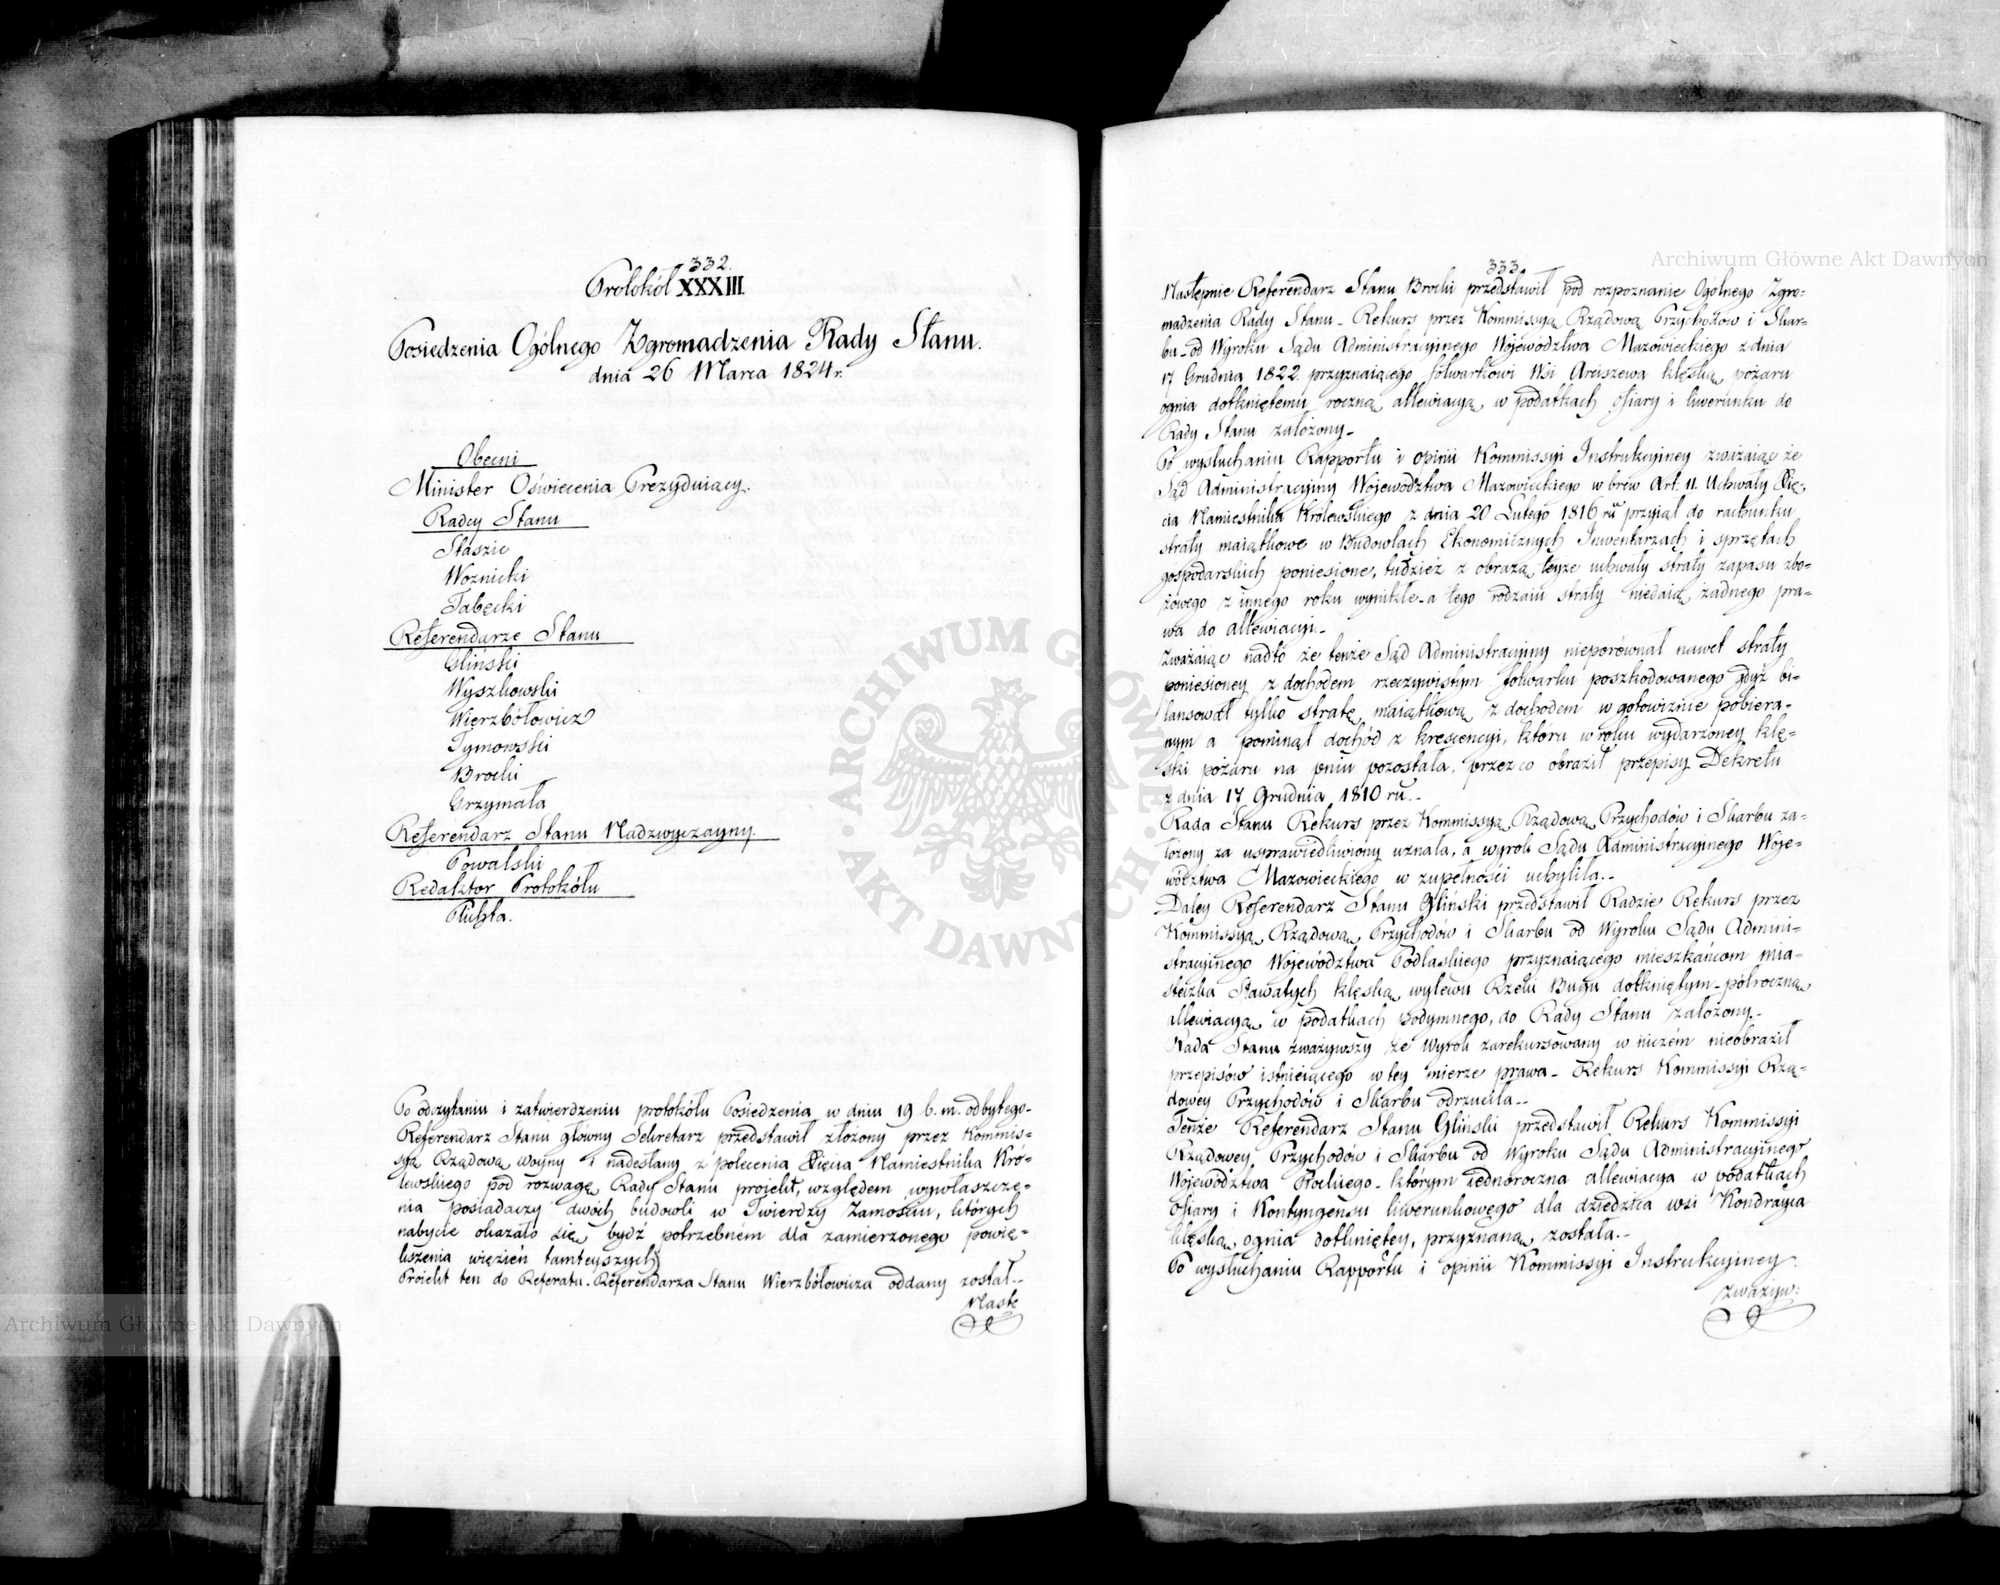 332.
Protokół XXXIII.
Posiedzenia Ogólnego Zgromadzenia Rady Stanu.
dnia 26 Marca 1824 r.
Obecni
Minister Oświecenia Prezyduiący.
Radcy Stanu
Staszic
Woznicki
Tabęcki
Referendarze Stanu
Gliński
Wyszkowski
Wierzbołowicz
Tymowski
Brocki
Grzymała
Referendarz Stanu Nadzwyczayny.
Powalski
Redaktor Protokółu
Pluhta.
Po odczytaniu i zatwierdzeniu protokółu Posiedzenia w dniu 19 b. m. odbytego-
Referendarz Stanu główny Sekretarz przedstawił złożony przez Kommis-
syą Rządową woyny i nadesłany z polecenia Xięcia Namiestnika Kró-
lewskiego pod rozwagę Rady Stanu projekt, względem wywłaszcze-
nia posiadaczy dwóch budowli w Twierdzy Zamościu, których
nabycie okazało się bydź potrzebném dla zamierzonego powię-
kszenia więzień tamteyszych
Projekt ten do Referatu Referendarza Stanu Wierzbołowicza oddany został.-
Nastę
333
Następnie Referendarz Stanu Brocki przedstawił pod rozpoznanie Ogólnego Zgro-
madzenia Rady Stanu - Rekurs przez Kommissyą Rządową Przychodów i Skar-
bu - od Wyroku Sądu Administracyinego Województwa Mazowieckiego z dnia
17 Grudnia 1822 przyznaiącego folwarkowi Wsi Arciszewa klęską pożaru
ognia dotkniętemu roczną allewiacyą w podatkach ofiary i liwerunku do
Rady Stanu założony-
Po wysłuchaniu Rapportu i opinii Kommissyi Instrukcyiney zważaiąc że
Sąd Administracyiny Województwa Mazowieckiego wbrew Art: 11. Uchwały Xię-
cia Namiestnika Królewskiego z dnia 20 Lutego 1816 ru przyiął do rachunku
straty maiątkowe w Budowlach Ekonomicznych Inwentarzach i sprzętach
gospodarskich poniesione, tudzież z obrazą teyże uchwały straty zapasu zbo-
żowego z innego roku wynikłe - a tego rodzaiu straty niedaią żadnego pra-
wa do allewiacyi.-
Zważaiąc nadto że tenże Sąd Administracyiny nieporównał nawet straty
poniesioney z dochodem rzeczywistym folwarku poszkodowanego gdyż bi-
lansował tylko stratę maiątkową z dochodem w gotowiznie pobiera-
nym a pominął dochód z krescencyi, która w roku wydarzoney klę-
ski pożaru na pniu pozostała, przez co obraził przepisy Dekretu
z dnia 17 Grudnia 1810 ru.-
Rada Stanu Rekurs przez Kommissyą Rządową Przychodów i Skarbu za-
łożony za usprawiedliwiony uznała, a wyrok Sądu Administracyinego Woje-
wództwa Mazowieckiego w zupełności uchyliła.-
Daley Referendarz Stanu Gliński przedstawił Radzie Rekurs przez
Kommissyą Rządową Przychodów i Skarbu od Wyroku Sądu Admini-
stracyinego Województwa Podlaskiego przyznaiącego mieszkańcom mia-
steczka Sławatych klęską wylewu Rzeki Bugu dotkniętym - półroczną
allewiacyą w podatkach podymnego, do Rady Stanu założony.-
Rada Stanu zważywszy że Wyrok zarekursowany w niczém nieobraził
przepisów istnieiącego w tey mierze prawa - Rekurs Kommissyi Rzą-
dowey Przychodów i Skarbu odrzuciła.-
Tenże Referendarz Stanu Gliński przedstawił Rekurs Kommissyi
Rządowey Przychodów i Skarbu od Wyroku Sądu Administracyinego
Województwa Płockiego - którym iednoroczna allewiacya w podatkach
ofiary i Kontyngensu liwerunkowego dla dziedzica wsi Kondrayca
klęską ognia dotkniętey, przyznaną została.-
Po wysłuchaniu Rapportu i opinii Kommissyi Instrukcyiney
Zważyw:
Archiwum Główne Akt Dawnych
Archiwum Główne Akt Dawnych
ARCHIWUM GŁÓWNE AKT DAWNYCH